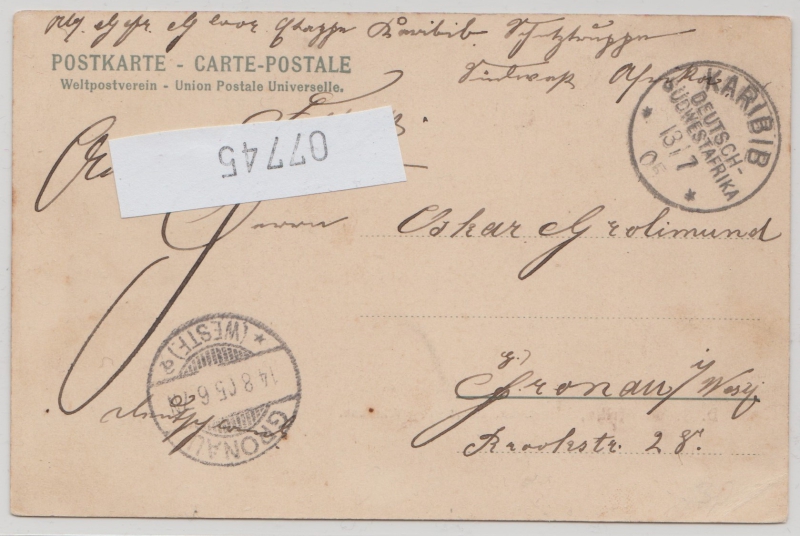 Etappe Karibib Schutztruppe
POSTKARTE - CARTE-POSTALE
Weltpostverein - Union Postale Universelle.
Südwest Afrika
KARIBIB
DEUTSCH-
SÜDWESTAFRIKA
13/7
05
07745
Herrn Oskar Grolimund
GRONAU
* (WESTF.) a
14.8.05.6-7N.
g.)
Gronau i/Westf.
Deutschland
Brookstr. 28.